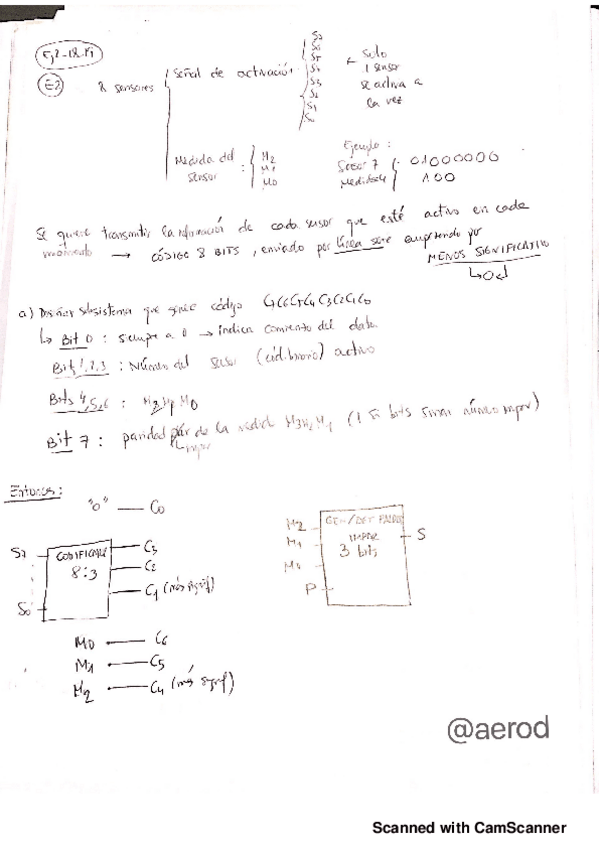 E2
8 sensores
Señal de activación:
S7
S6
S5
S4
S3
S2
S1
S0
← Solo
1 sensor
se activa a
la vez
Medida del
sensor :
M2
M1
M0
Ejemplo :
Sensor 7 : 01000000
100
Se quiere transmitir la información de cada sensor que esté activo en cada
momento → CÓDIGO 8 BITS, enviado por línea serie empezando por
MENOS SIGNIFICATIVO
a) Diseñar subsistema que genere código C7C6C5C4C3C2C1C0
↳ Bit 0 : siempre a 0 → indica comienzo del dato
Bits 1,2,3 : Número del sensor (cód. binario) activo
Bits 4,5,6 : M2 M1 M0
Bit 7 : paridad par de la medida (1 si bits suman número impar)
impar
Entonces :
"0" — C0
S7
S0
CODIFICADOR
8:3
C3
C2
C1 (más signif)
M2
M1
M0
P
GEN/DET PARIDAD
IMPAR
3 bits
S
M0 — C6
M1 — C5
M2 — C4 (más signif)
@aerod
Scanned with CamScanner